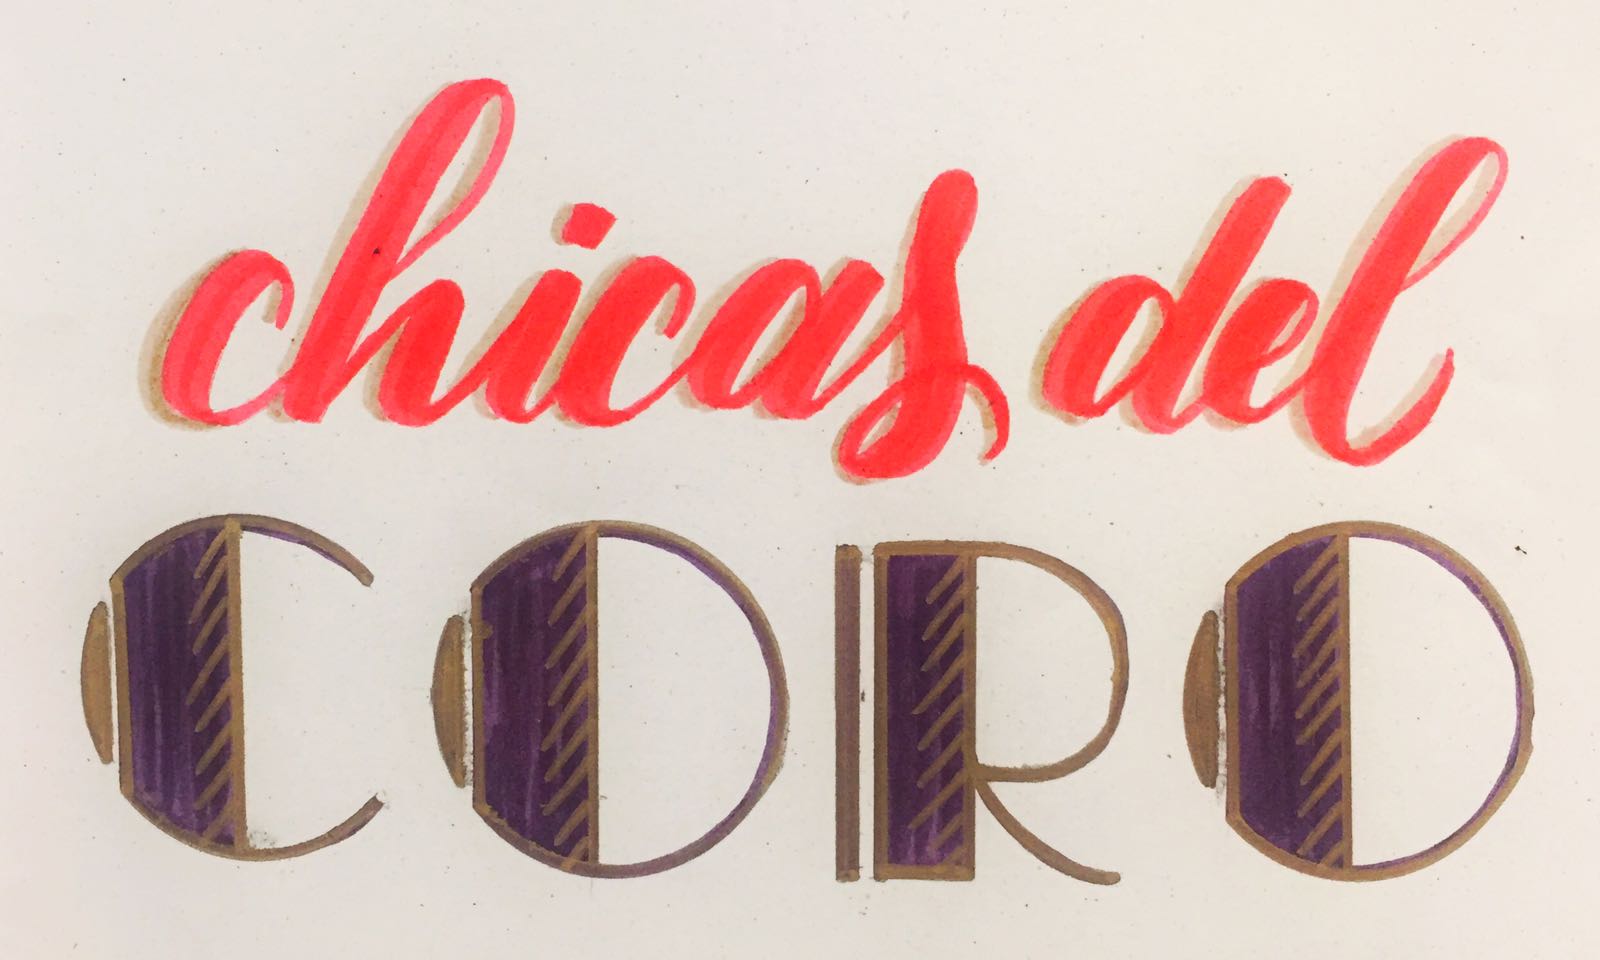 chicas del
CORO